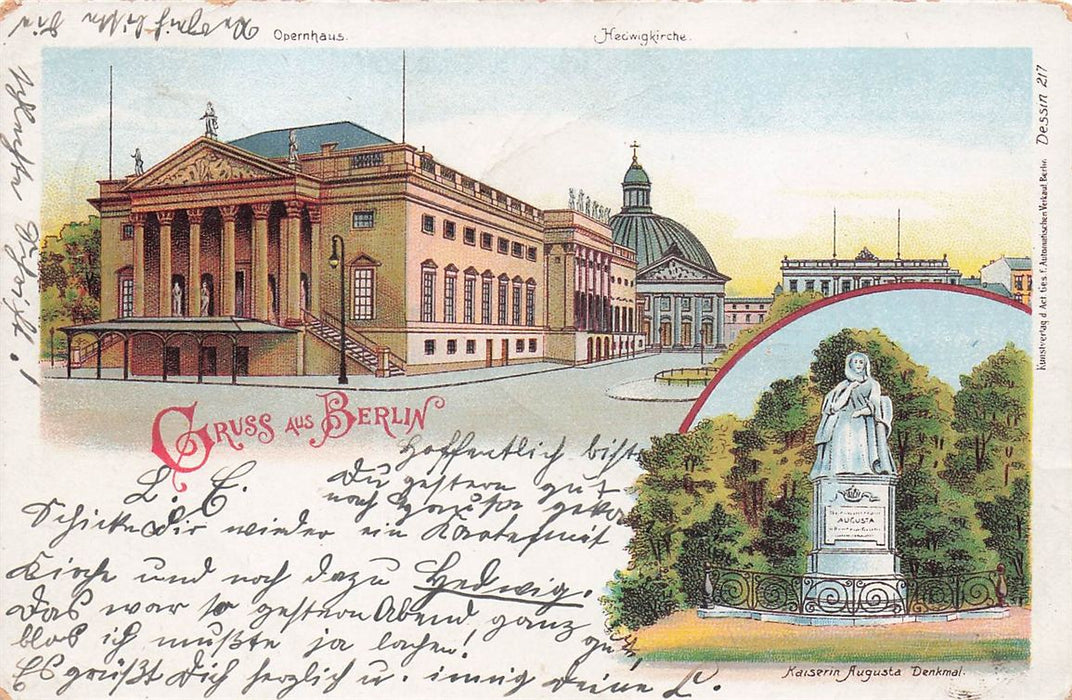 Opernhaus.
Hedwigkirche.
Kunstverlag d. Act. Ges. f. Automatischen Verkauf, Berlin. Dessin 217
GRUSS AUS BERLIN
L. E.
Hoffentlich bist
Du gestern gut
nach Hause geko
Schicke Dir wieder ein Karte mit
Kirche und noch dazu Hedwig.
Das war so gestern Abend, ganz
blos ich mußte ja lachen!
Es grüßt Dich herzlich u. innig Deine L.
AUGUSTA
Kaiserin Augusta Denkmal.